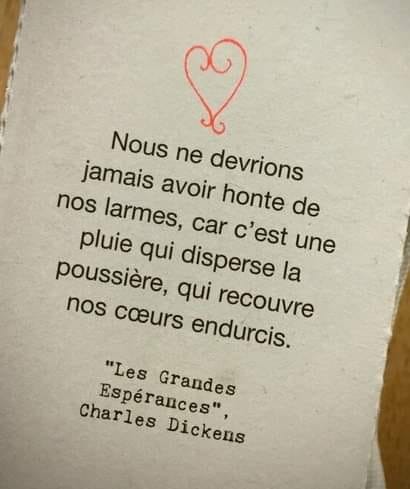 Nous ne devrions
jamais avoir honte de
nos larmes, car c'est une
pluie qui disperse la
poussière, qui recouvre
nos cœurs endurcis.
"Les Grandes
Espérances",
Charles Dickens